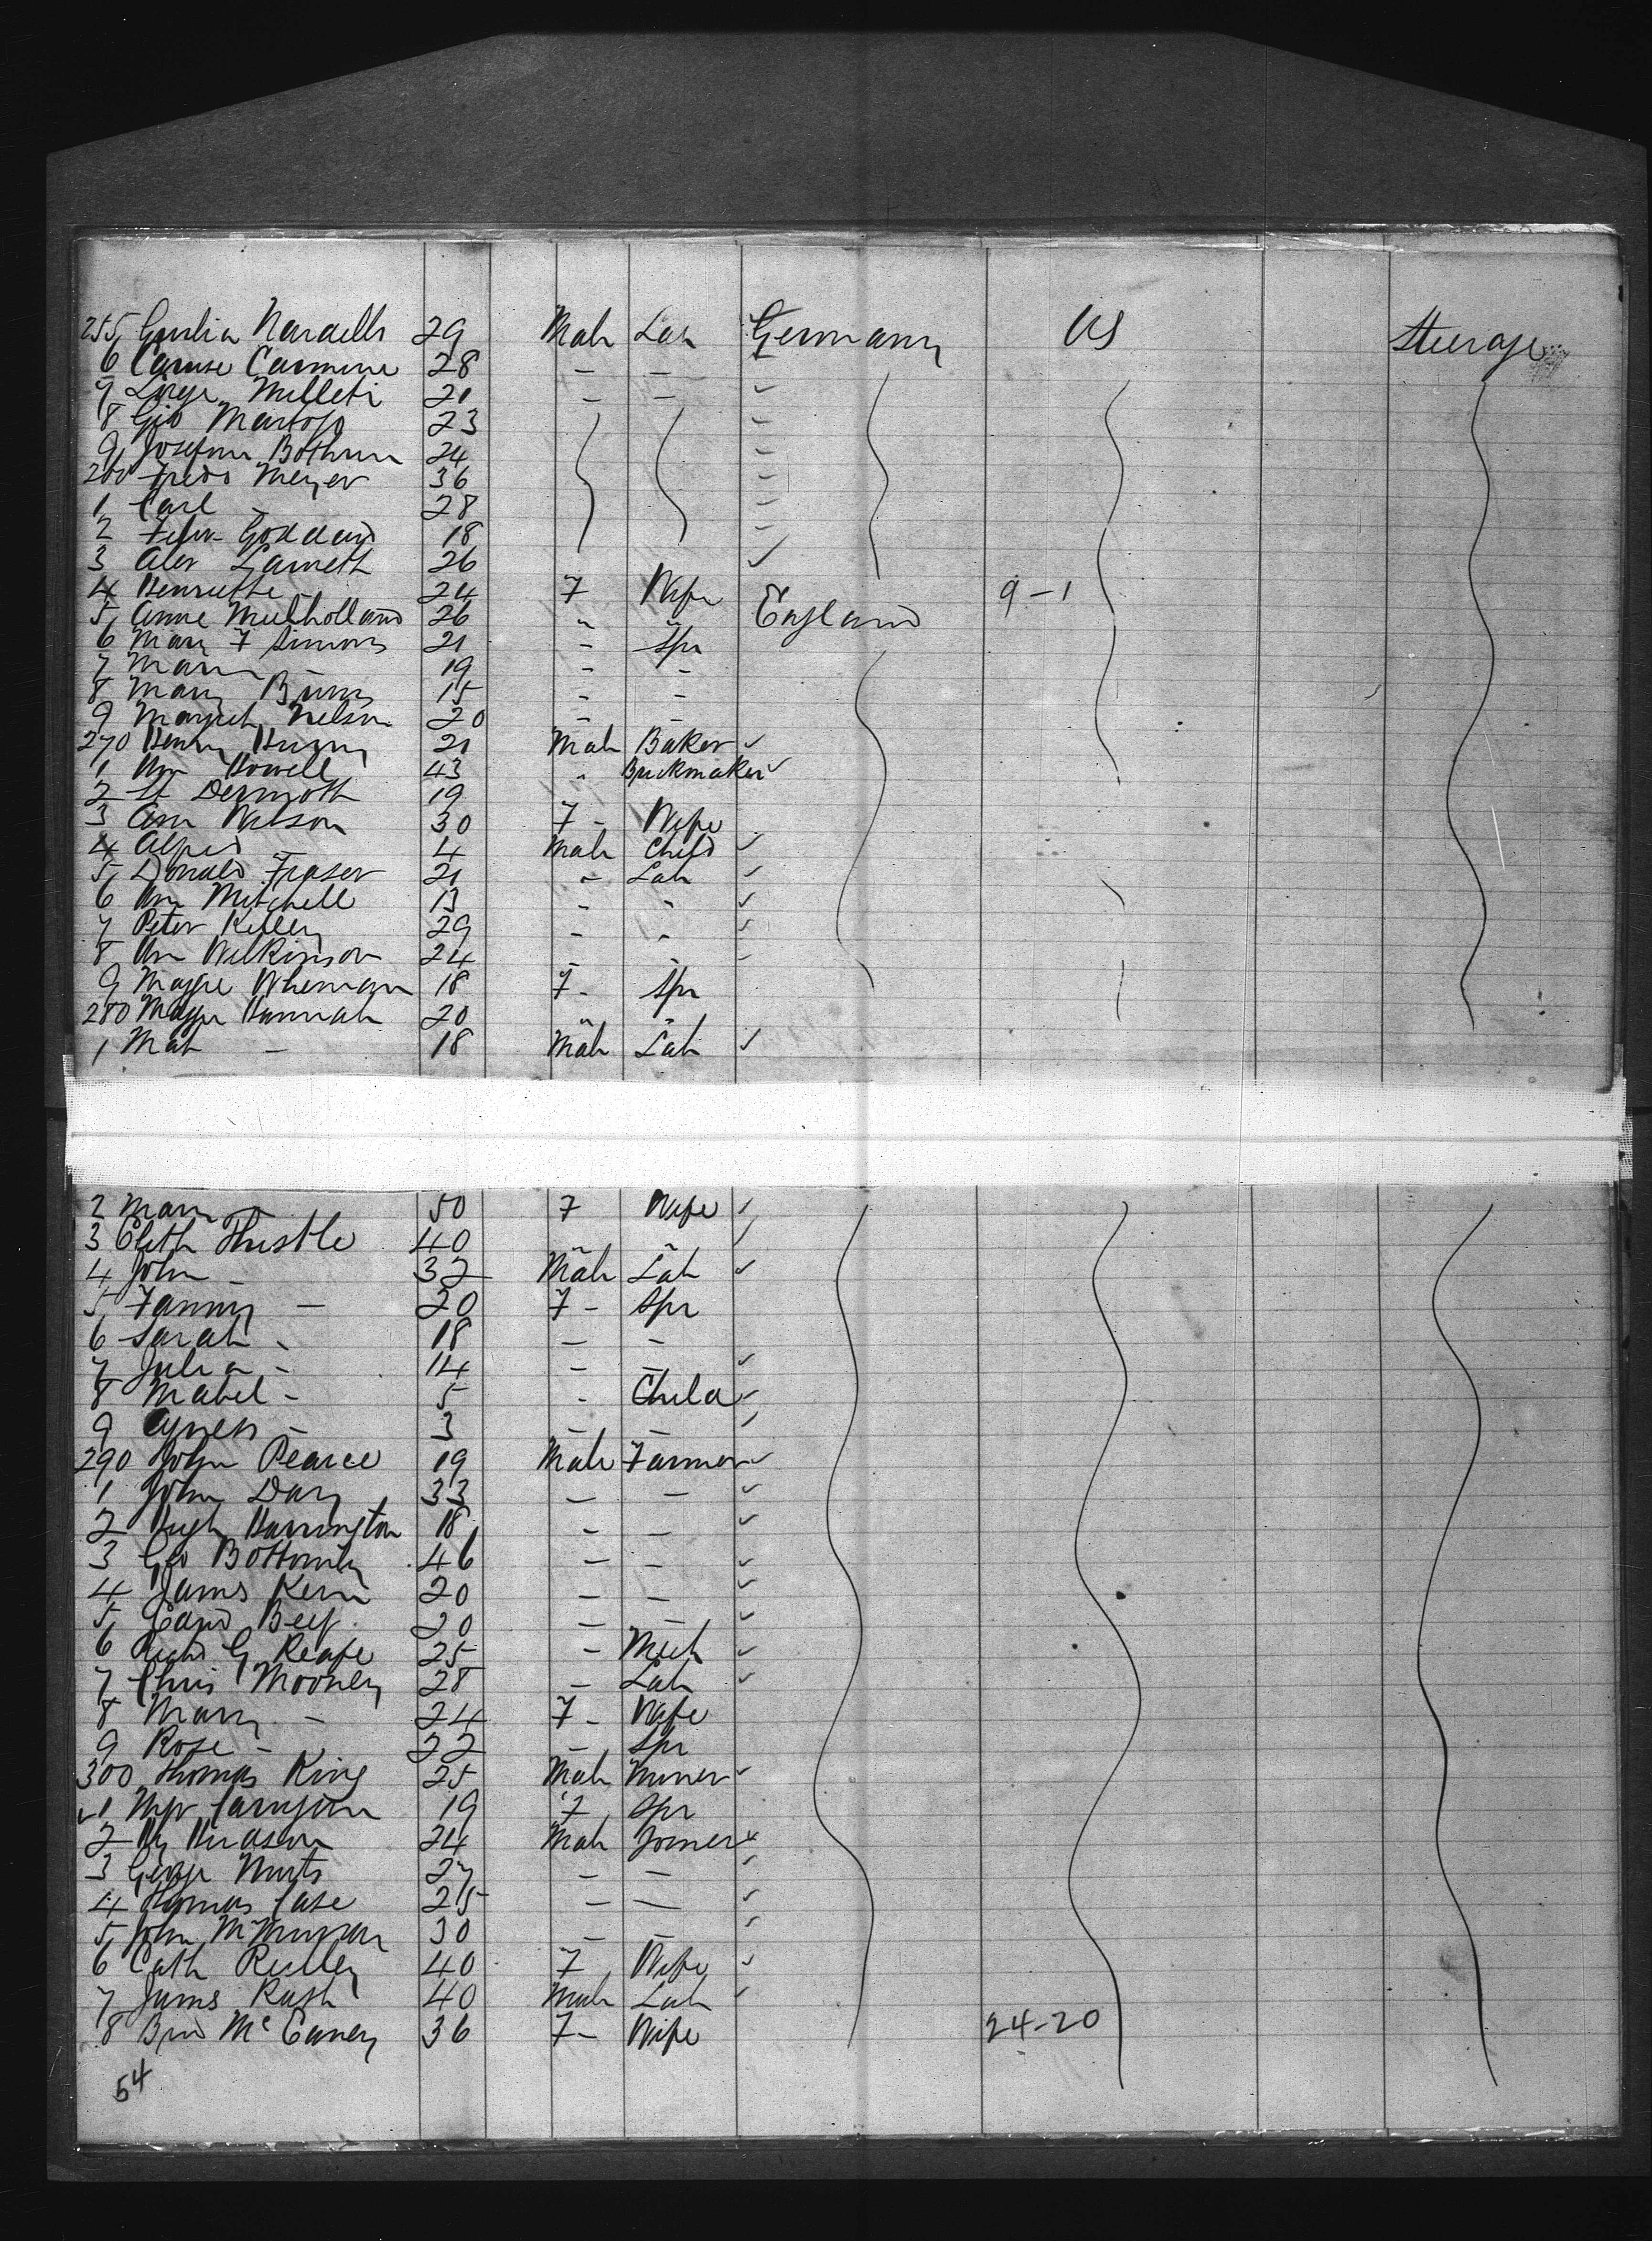 255 Giulia Nardelli 29 Male Lab Germany US Steerage
6 Caruse Carmine 28 – –
7 Luigi Milleti 21 – –
8 Gio 23
9 Bothum 24
260 Fredk Meyer 36
1 Carl – 28
2 Goddard 18
3 Alex Garneth 26
4 Henriette – 24 F Wife 9–1
5 Anne Mulholland 26 " " England
6 Mary F Simons 21 – Spr
7 Mary – 19 – –
8 Mary Burns 15 – –
9 Margret Nelson 20 – –
270 Henry 21 Male Baker
1 Wm Howell 43 " Brickmaker
2 Dermoth 19
3 Ann Watson 30 F – Wife
4 Alfred – 4 Male Child
5 Donald Fraser 21 – Lab
6 Wm Mitchell 13 – –
7 Peter Kelley 29 – –
8 Wm Wilkinson 24 – –
9 Maggie 18 F – Spr
280 Maggie Hannah 20 – –
1 Mat – 18 Male Lab
2 Mary – 50 F Wife
3 Elith Thistle 40 – –
4 John – 32 Male Lab
5 Fanny – 20 F – Spr
6 Sarah – 18 – –
7 Julia – 14 – –
8 Mabel – 5 – Child
9 Agness – 3 – –
290 John Pearce 19 Male Farmer
1 John Day 33 – –
2 Hugh Harrington 18 – –
3 Geo Bottomley 46 – –
4 James Kern 20 – –
5 20 – –
6 Richd G 25 – Mech
7 Chris Mooney 28 – Lab
8 Mary – 24 F – Wife
9 Rose – 22 – Spr
300 Thomas King 25 Male Miner
1 19 F Spr
2 Hy Hudson 24 Male Joiner
3 George 27 – –
4 Thomas Case 25 – –
5 John McMurray 30 – –
6 Cath Reilley 40 F Wife
7 James Rush 40 Male Lab
8 Brid McEaney 36 F – Wife 24–20
54